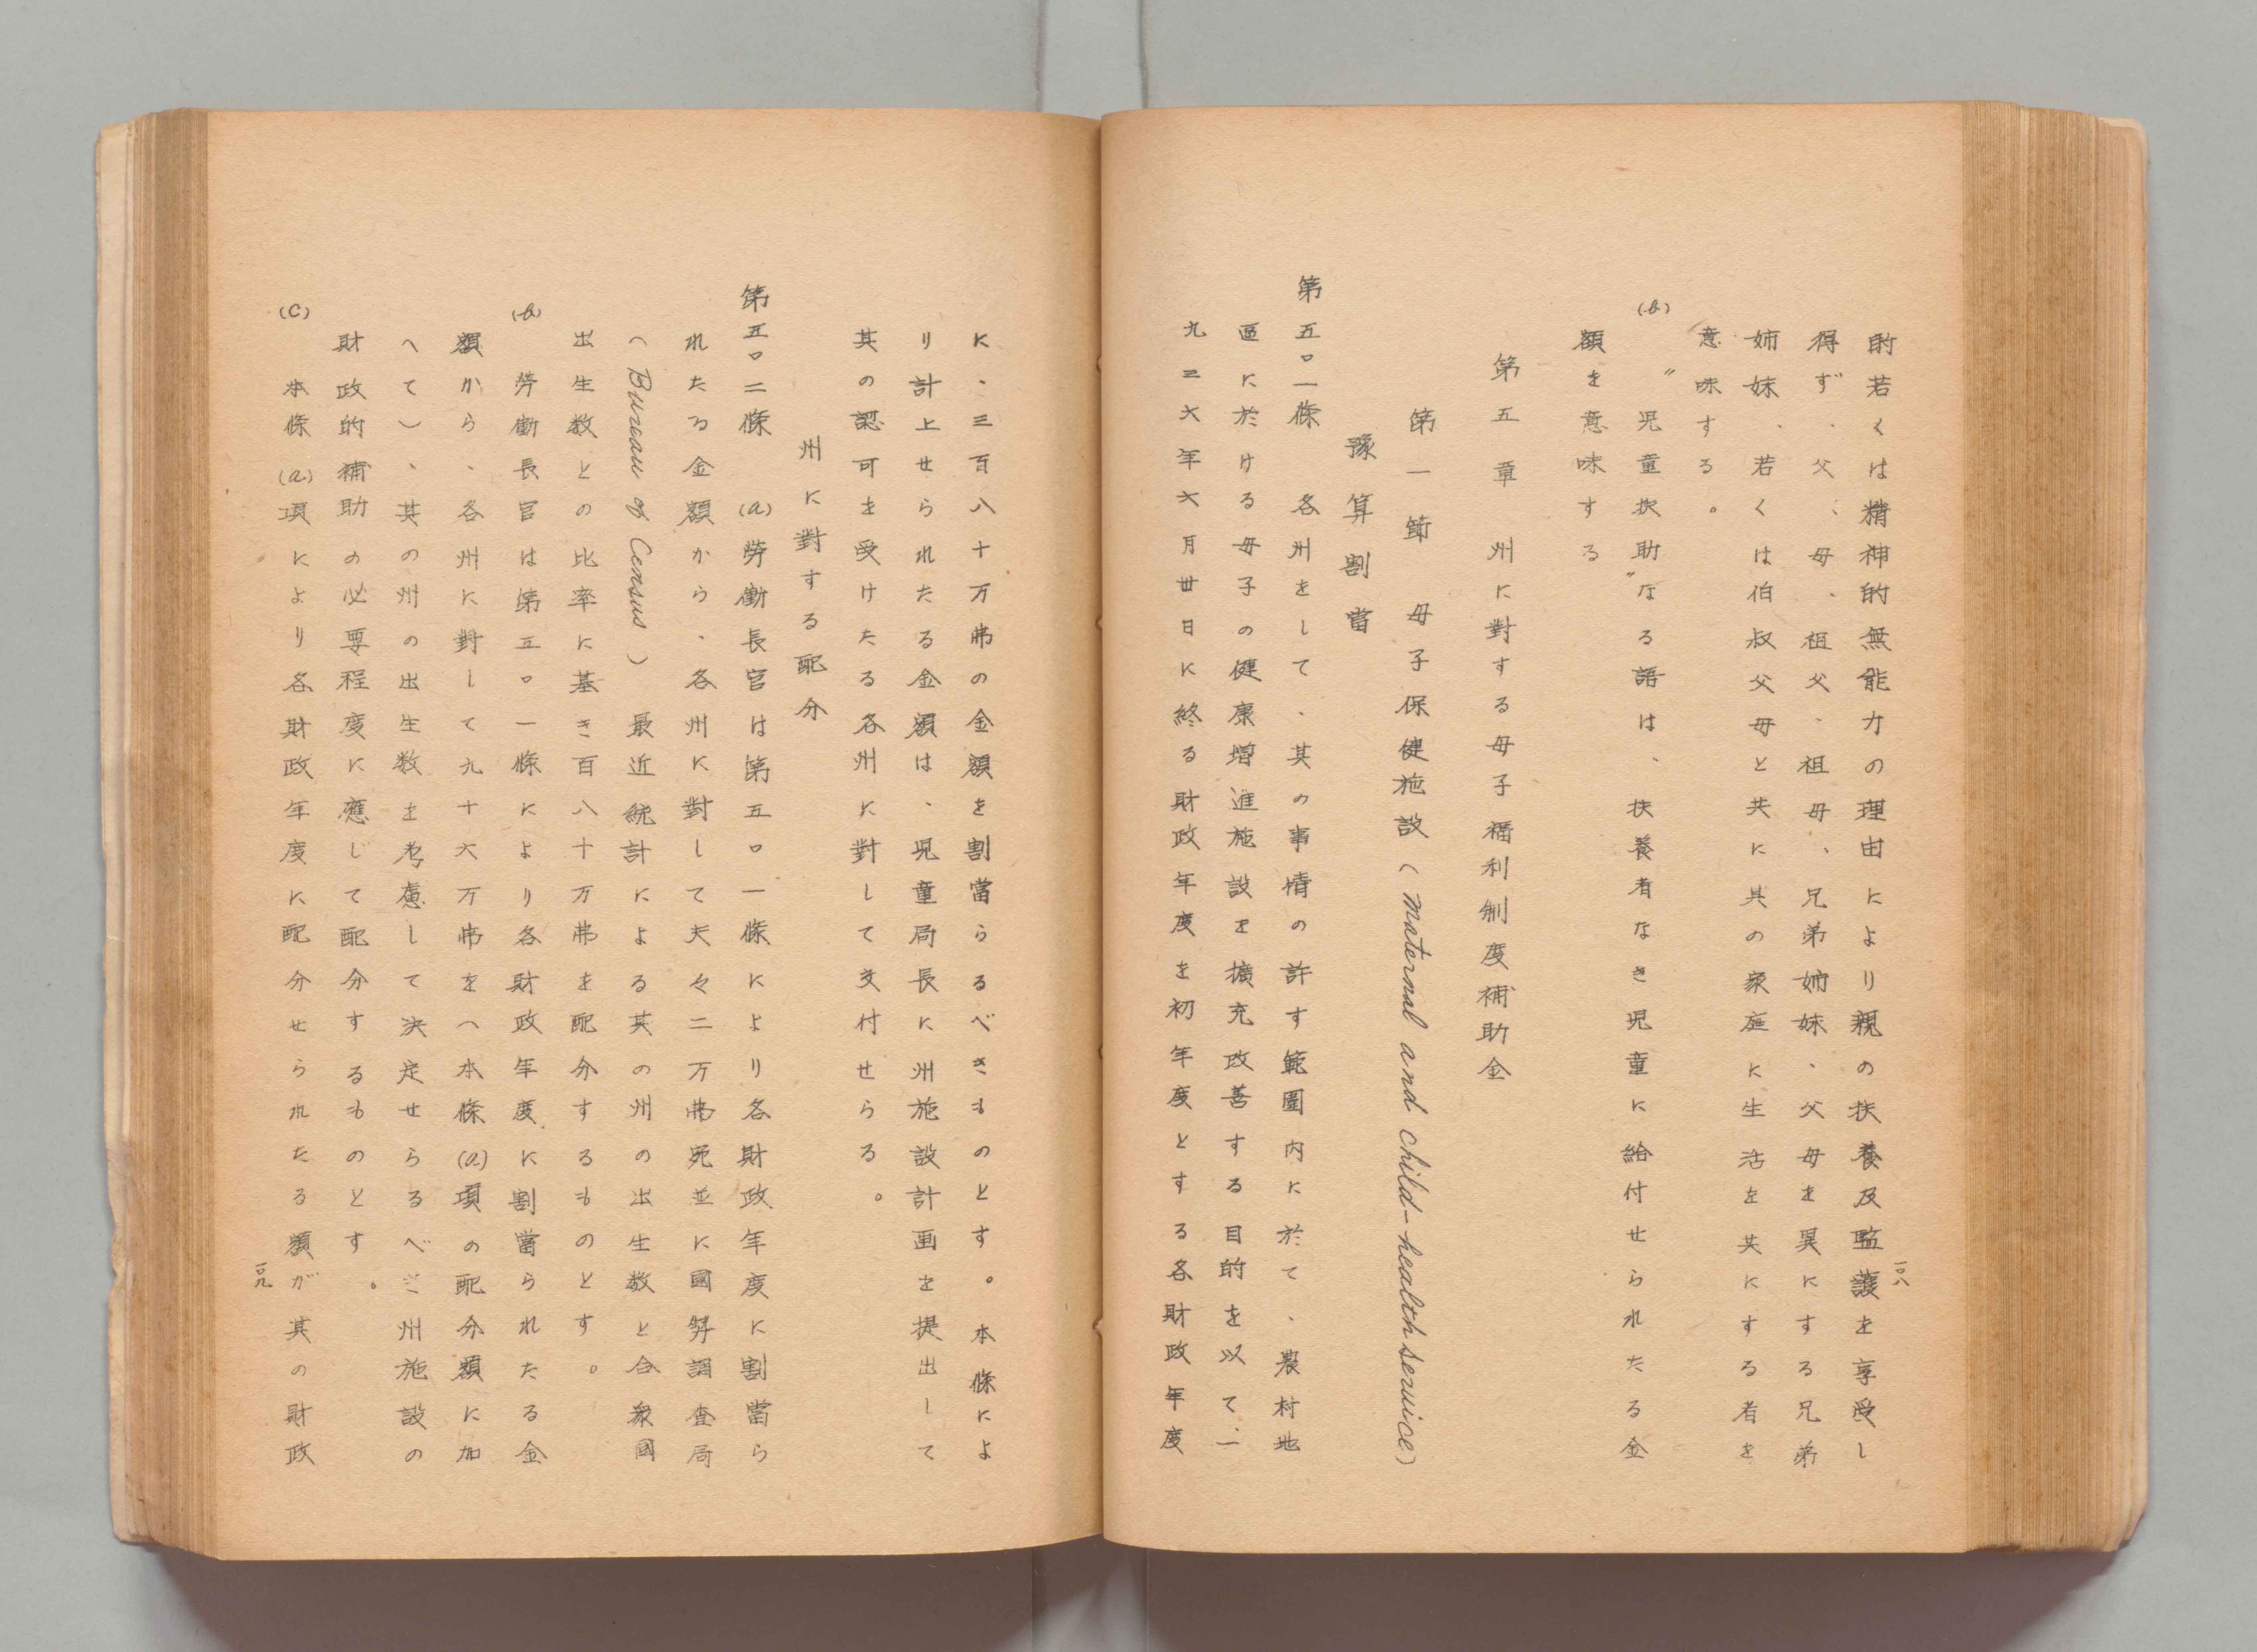 一〇八
的若くは精神的無能力の理由により親の扶養及監護を享受し
得ず、父、母、祖父、祖母、兄弟姉妹、父母を異にする兄弟
姉妹、若くは伯叔父母と共に其の家庭に生活を共にする者を
意味する。
(b) 〃児童扶助〃なる語は、扶養者なき児童に給付せられたる金
額を意味する
第五章 州に對する母子福利制度補助金
第一節 母子保健施設(Maternal and child-health service)
豫算割當
第五〇一條 各州をして、其の事情の許す範圍内に於て、農村地
區に於ける母子の健康増進施設を擴充改善する目的を以て、一
九三六年六月卅日に終る財政年度を初年度とする各財政年度
に、三百八十万弗の金額を割當らるべきものとす。本條によ
り計上せられたる金額は、児童局長に州施設計画を提出して
其の認可を受けたる各州に對して交付せらる。
州に對する配分
第五〇二條 (a)労働長官は第五〇一條により各財政年度に割當ら
れたる金額から、各州に對して夫々二万弗宛並に國勢調査局
(Bureau of Census)最近統計による其の州の出生数と合衆國
出生数との比率に基き百八十万弗を配分するものとす。
(b) 労働長官は第五〇一條により各財政年度に割當られたる金
額から、各州に對して九十六万弗を(本條(a)項の配分額に加
へて)、其の州の出生数を考慮して決定せらるべき州施設の
財政的補助の必要程度に應じて配分するものとす。
(c) 本條(a)項により各財政年度に配分せられたる額が其の財政
一〇九